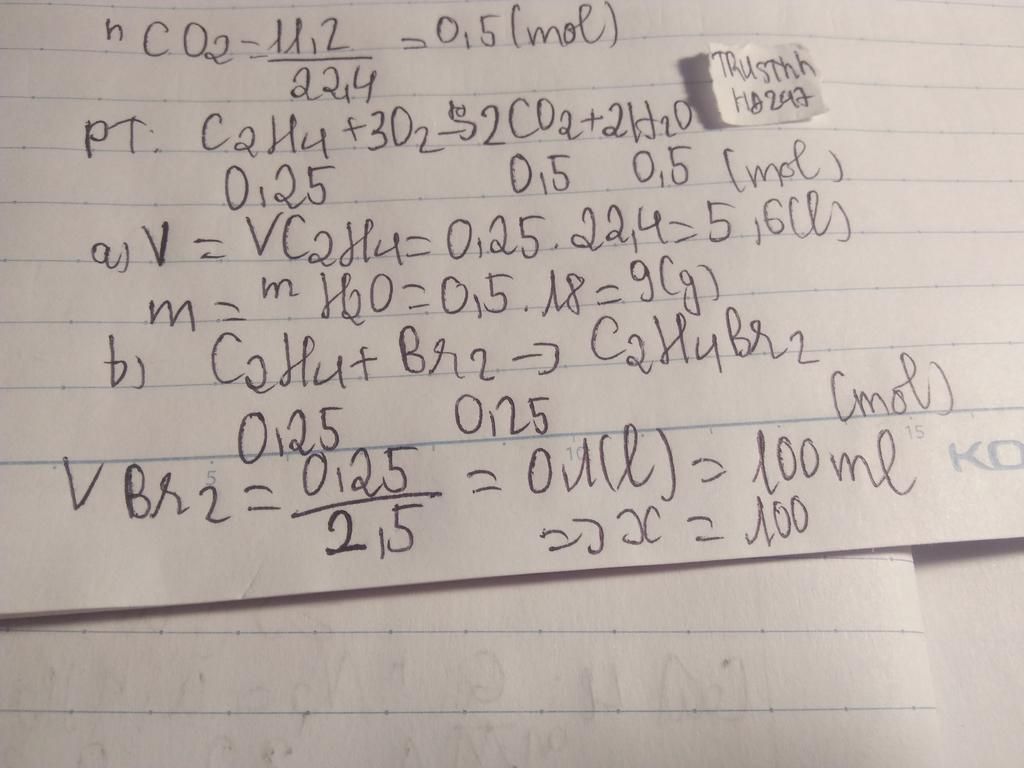 n CO2 = 11,2 / 22,4 = 0,5 (mol)
TRUSTHh
H8247
PT: C2H4 + 3O2 → 2CO2 + 2H2O
0,25 0,5 0,5 (mol)
a) V = VC2H4 = 0,25 . 22,4 = 5,6 (l)
m = m H2O = 0,5 . 18 = 9(g)
b) C2H4 + Br2 → C2H4Br2
0,25 0,25 (mol)
V Br2 = 0,25 / 2,5 = 0,1(l) = 100 ml
=> x = 100
5 10 15
KO